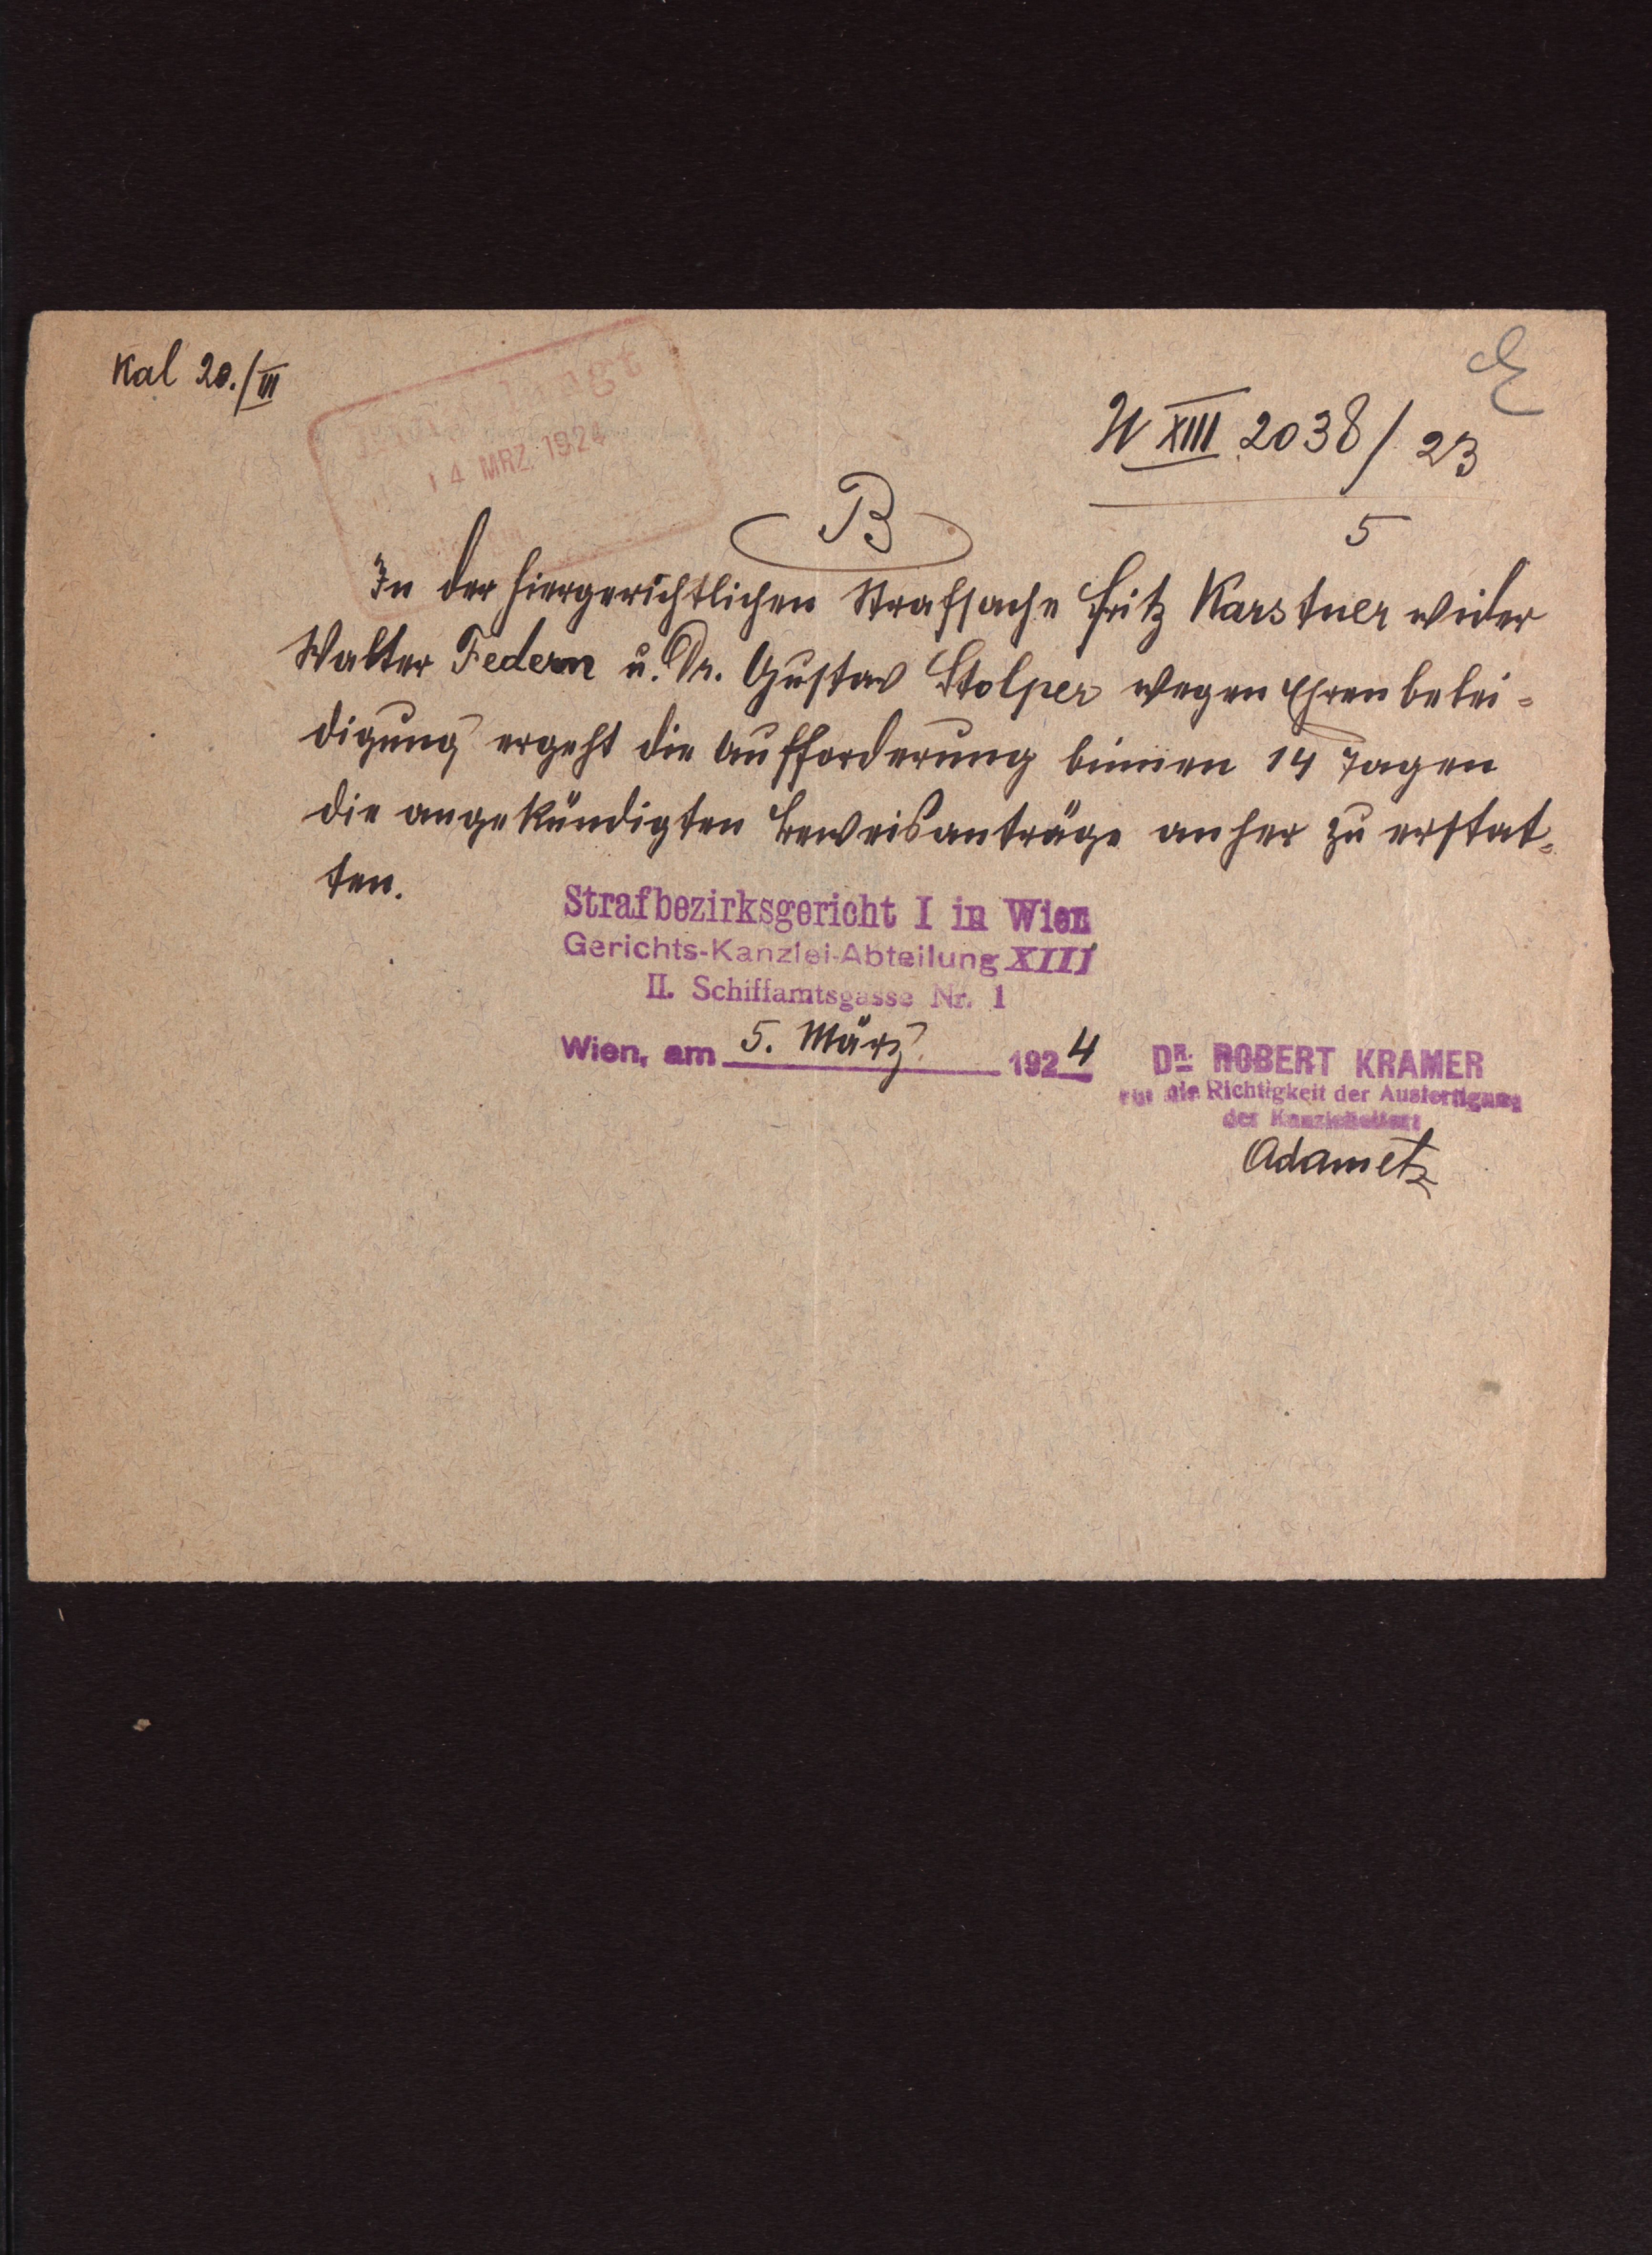 Kal 20./III
langt
14 MRZ. 1924
E
U XIII 2038/23
5
B
In der hiergerichtlichen Strafsache Fritz Karstner wider
Walter Federn u. Dr. Gustav Stolper wegen Ehrenbelei=
digung ergeht die Aufforderung binnen 14 Tagen
die angekündigten Beweisanträge anher zu erstat=
ten.
Strafbezirksgericht I in Wien
Gerichts-Kanzlei-Abteilung XIII
II. Schiffamtsgasse Nr. 1
Wien, am 5. März 1924
DR. ROBERT KRAMER
Für die Richtigkeit der Ausfertigung
der Kanzleileiter:
Adametz